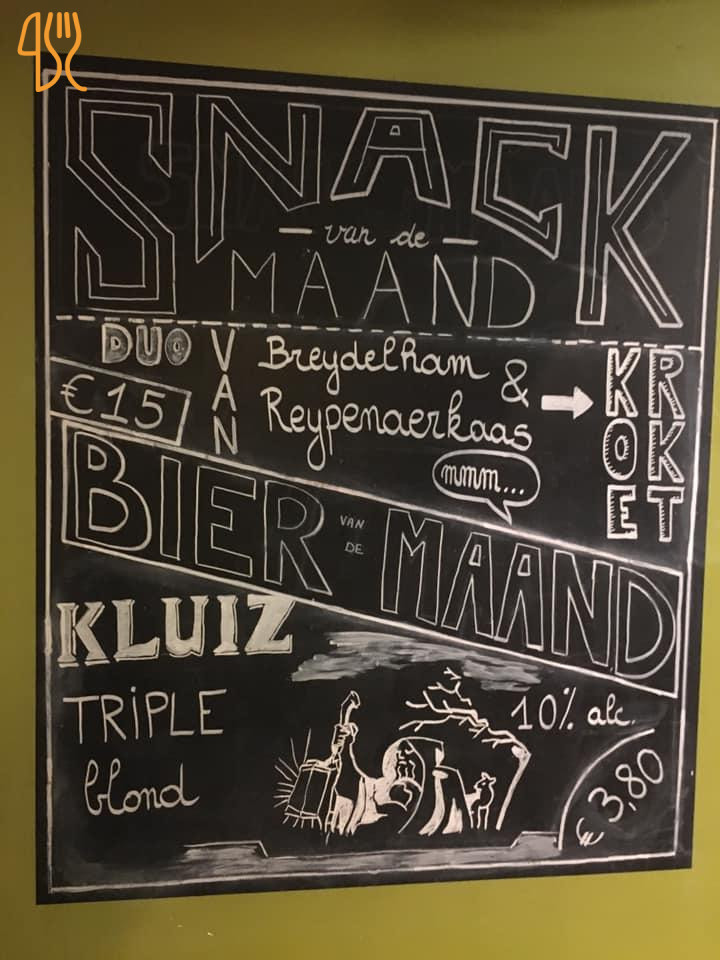 SNACK
van de
MAAND
DUO VAN Breydelham &
Reypenaerkaas
KROKET
€15
mmm...
BIER VAN DE MAAND
KLUIZ
TRiPLE
blond
10% alc.
€ 3,80